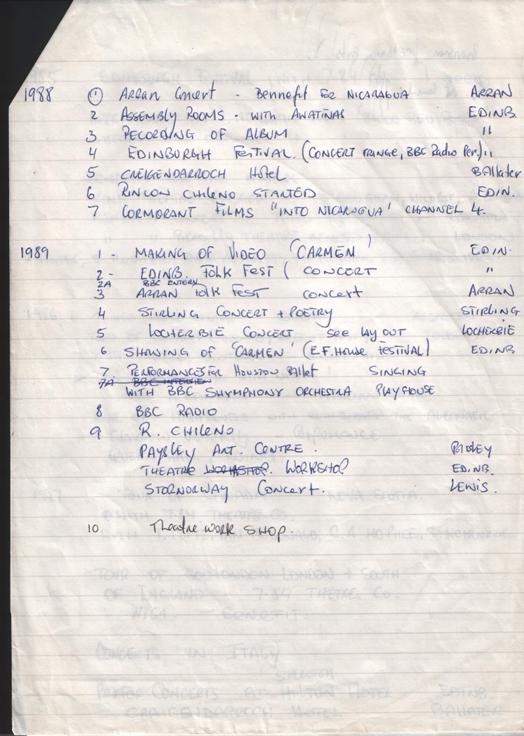 1988 ① Arran Concert - Bennefit for NICARAGUA ARRAN
2 ASSEMBLY ROOMS - WITH AWATINAS EDINB.
3 RECORDING OF ALBUM "
4 EDINBURGH FESTIVAL. (CONCERT FRINGE, BBC Radio Per.) "
5 CREIGENDARROCH HOTEL BAllater
6 RINCON CHILENO STARTED EDIN.
7 CORMORANT FILMS "INTO NICARAGUA' CHANNEL 4.
1989 1 - MAKING OF VIDEO 'CARMEN' EDIN.
2 - EDINB. FOLK FEST ( CONCERT "
2A BBC
3 ARRAN FOLK FEST CONCERT ARRAN
4 STIRLING CONCERT + POETRY STIRLING
5 LOCHERBIE CONCERT SEE LAY OUT LOCHERBIE
6 SHOWING OF 'CARMEN' (E.F. House FESTIVAL) EDINB
7. PERFORMANCES FOR Houston Ballet SINGING
7A BBC INTERVIEW
WITH BBC SHYMPHONY ORCHESTRA PLAYHOUSE
8 BBC RADIO
9 R. CHILENO
PAYSLEY ART. CENTRE.
THEATRE WORKSHOP EDINB.
STORNORWAY CONCERT. LEWIS.
10 Theatre WORK SHOP
TOUR OF LONDON + SOUTH
OF ENGLAND 7:84 THETRE Co.
CONCERTS IN ITALY
CONCERTS AT HILTON HOTEL EDINB.
CRAIGENDARROCH HOTEL BALLATER